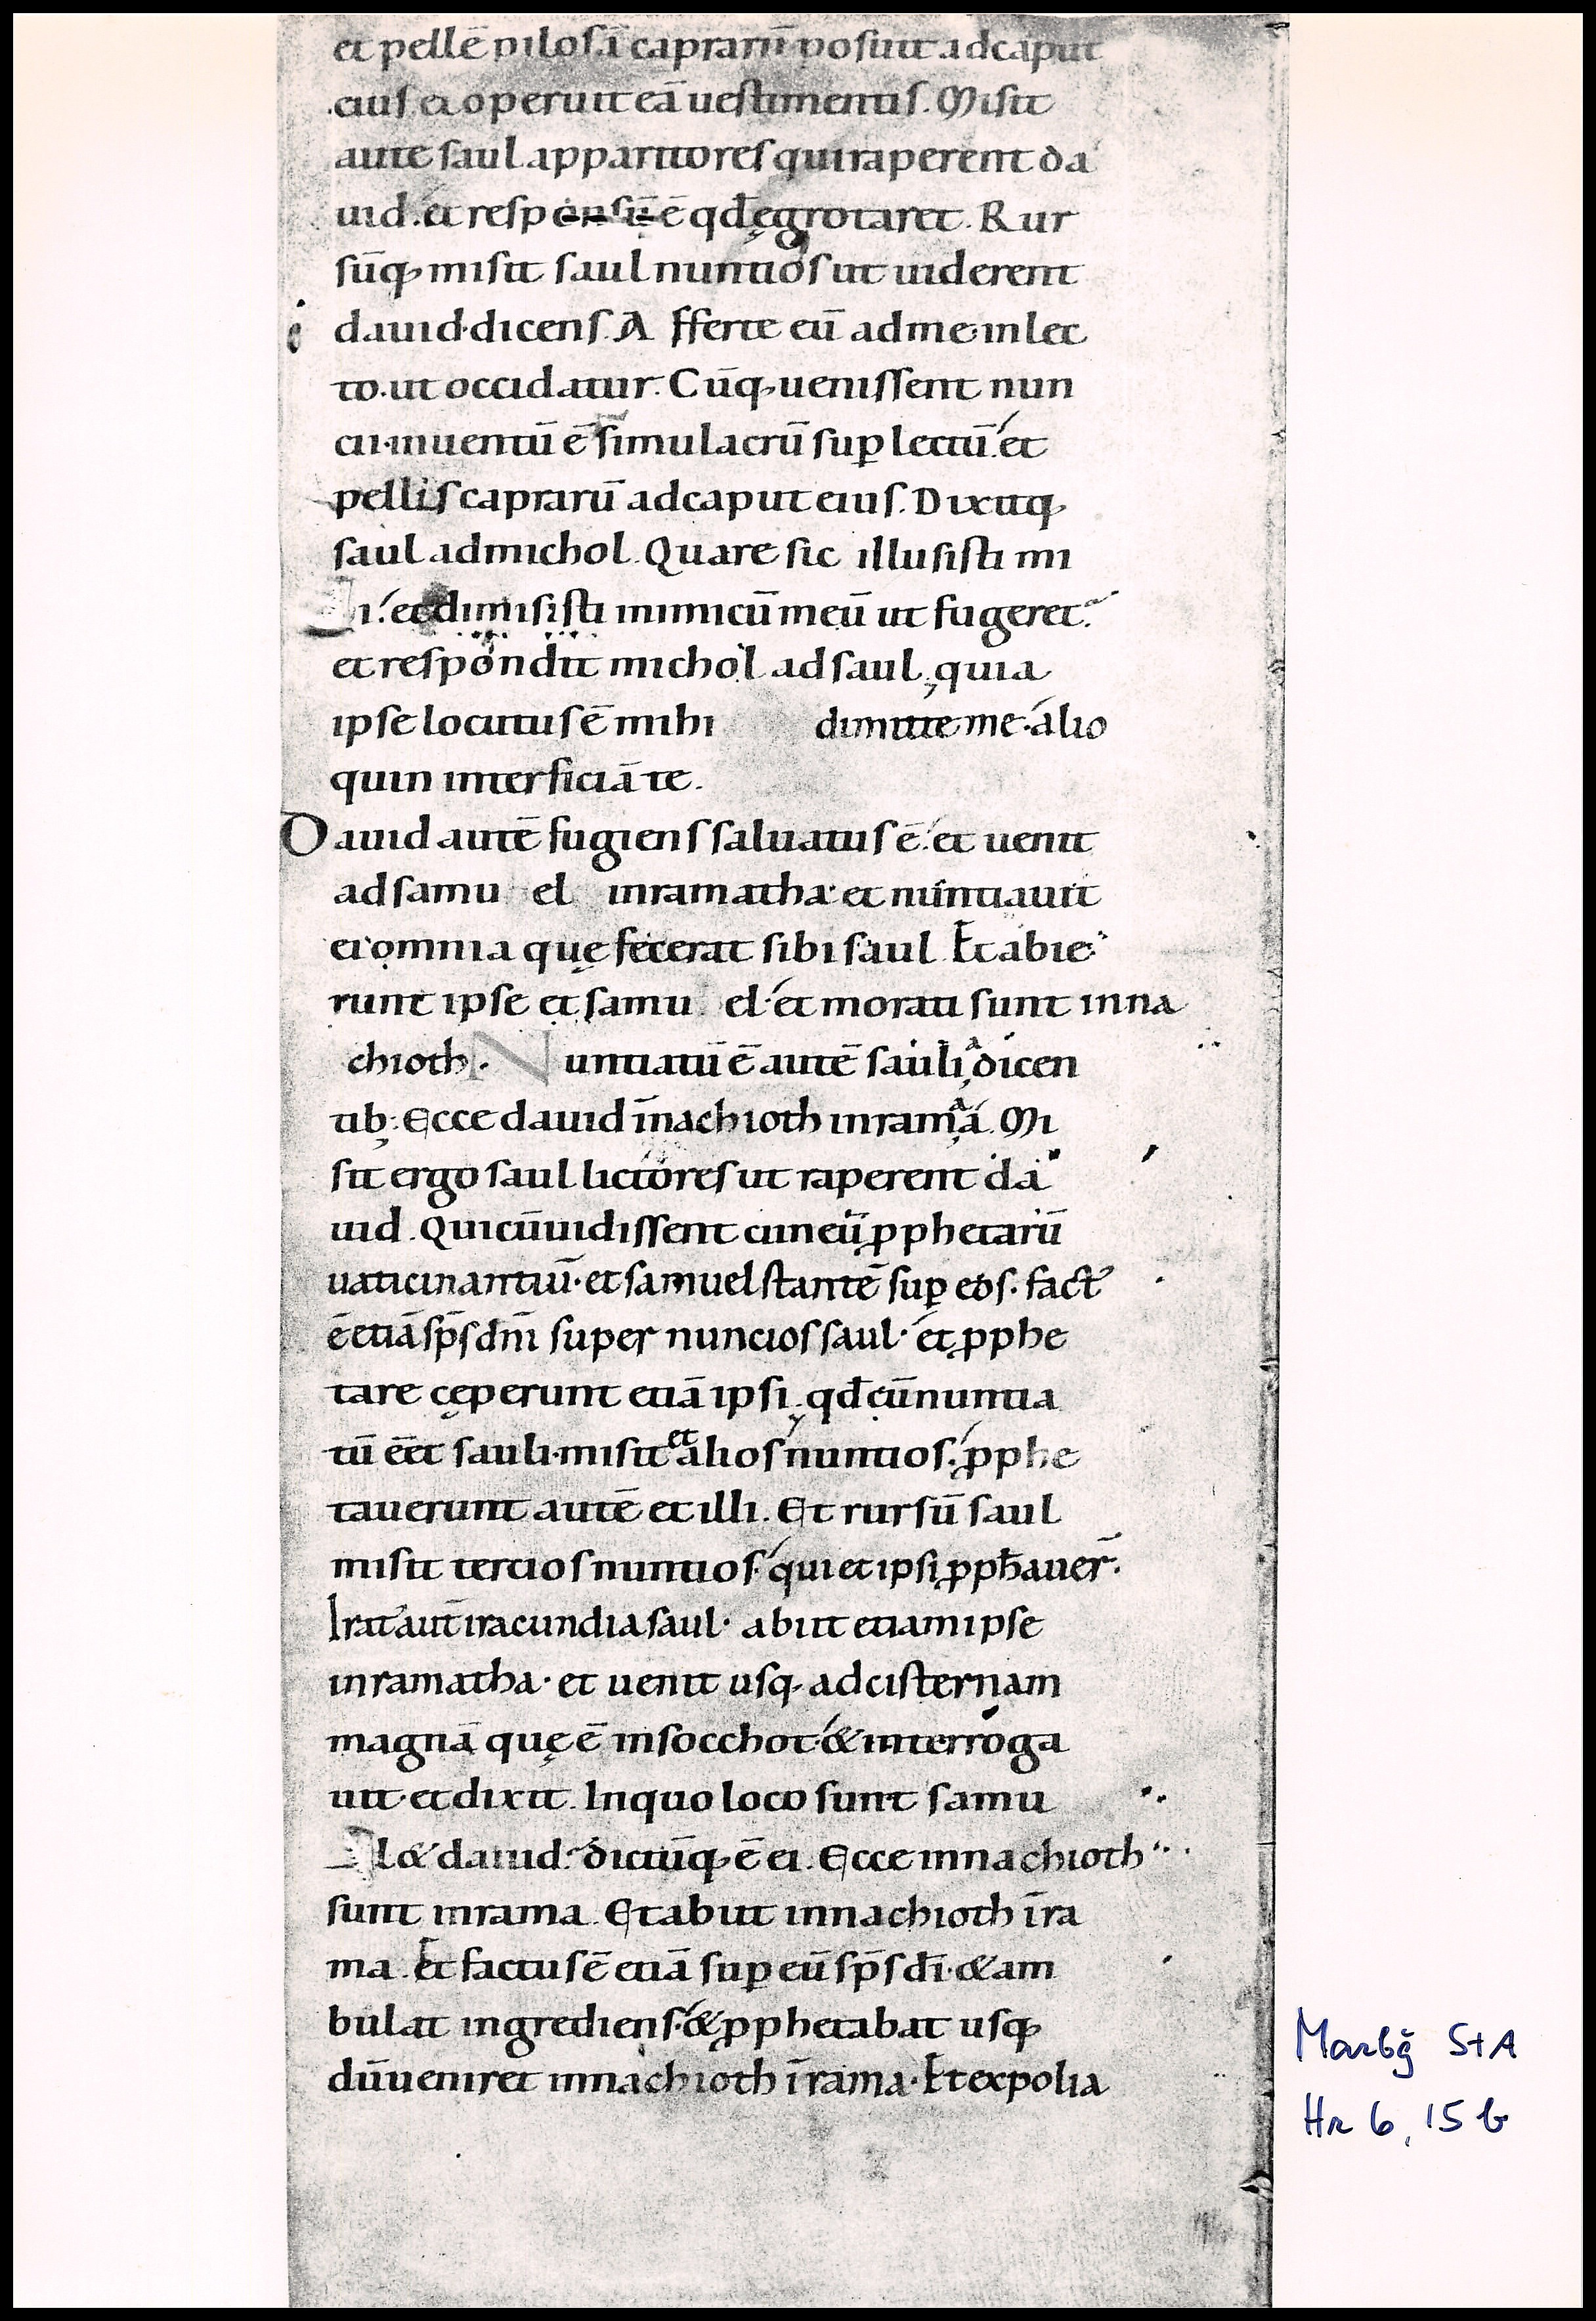 et pellē pilosā caprarū posuit ad caput
eius. et operuit eā uestimentis. Misit
autē saul apparitores qui raperent da
uid. et responsū ē qđ ęgrotaret. Rur
sūq; misit saul nuntios ut uiderent
dauid. dicens. Afferte eū ad me in lec
to. ut occidatur. Cūq; uenissent nun
cii. inuentū ē simulacrū sup̱ lectū. et
pellis caprarū ad caput eius. Dixitq;
saul ad michol. Quare sic illusisti mi
i. et dimisisti inimicū meū ut fugeret?
et respondit michol ad saul, quia
ipse locutus ē mihi dimitte me. alio
quin interficiā te.
Dauid autē fugiens saluatus ē. et uenit
ad samu el in ramatha. et nuntiauit
ei omnia quę fecerat sibi saul. Et abie
runt ipse et samu el. et morati sunt in na
chioth. Nuntiatū ē autē sauli a dicen
tib;. Ecce dauid ī nachioth in ramａ̣a. Mi
sit ergo saul lictores ut raperent da
uid. Qui cū uidissent cuneū p̱phetarū
uaticinantiū. et samuel stantē sup̱ eos. fact᾽
ē etiā sp̄s dn̄i super nuncios saul. et p̱phe
tare cęperunt etiā ipsi. qđ cū nuntia
tū eēt sauli. misit et alios nuntios. p̱phe
tauerunt autē et illi. Et rursū saul
misit tercios nuntios. qui et ipsi p̱pħauer̄.
Irat᾽ aut̄ iracundia saul. abiit etiam ipse
in ramatha. et uenit usq; ad cisternam
magnā quę ē in socchot. & interroga
uit. et dixit. In quo loco sunt samu
l & dauid? dictūq; ē ei. Ecce in nachioth
sunt in rama. Et abiit in nachioth ī ra
ma. Et factus ē etiā sup̱ eū sp̄s dī. & am
bulat ingrediens. & p̱phetabat usq;
dū ueniret in nachioth ī rama. Et expolia
Marbg StA
Hr 6, 15 b